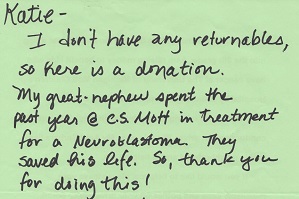 Katie -
I don't have any returnables,
so here is a donation.
My great-nephew spent the
past year @ C.S. Mott in treatment
for a Neuroblastoma. They
saved his life. So, thank you
for doing this!